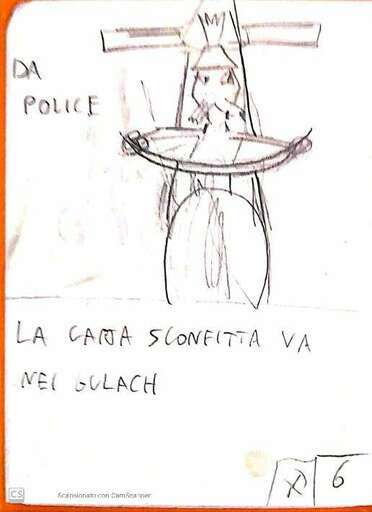 DA
POLICE
LA CARTA SCONFITTA VA
NEI GULACH
6
CS Scansionato con CamScanner